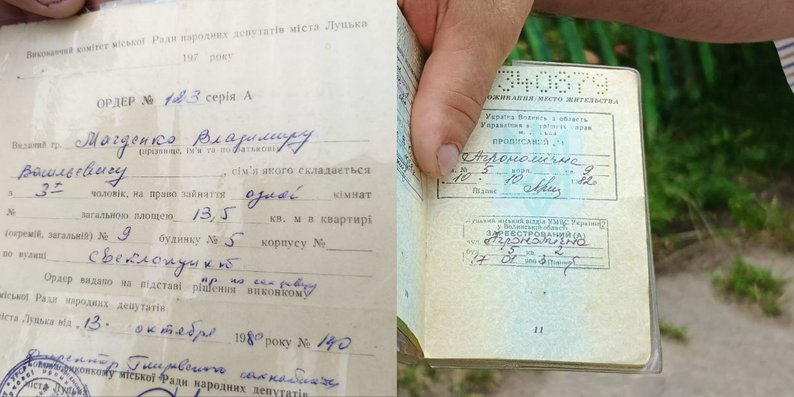 Виконавчий комітет міської Ради народних депутатів міста Луцька
197 року
ОРДЕР № 123 серія А
Виданий гр. Магденко Владимиру
(прізвище, ім'я та по батькові)
Васильевичу, сім'я якого складається
з 3х чоловік, на право зайняття одної кімнат
№ загальною площею 13,5 кв. м в квартирі
(окремій, загальній) № 9 будинку № 5 корпусу №
по вулиці Свеклопункт
Ордер видано на підставі рішення виконкому
міської Ради народних депутатів
міста Луцька від 13 октября 1980 року № 140
Директор
виконкому міської Ради народних депутатів
міста
340679
МЕСТО ЖИТЕЛЬСТВА
Україна Волинська область
Управління внутрішніх справ
ПРОПИСАНИЙ
Агрономічна
№ 5 корп. 9
10 10
Підпис
міський відділ УМВС України
у Волинській області
ЗАРЕЄСТРОВАНИЙ (А)
вул. Агрономічна
5 кв. 2
17 01
11